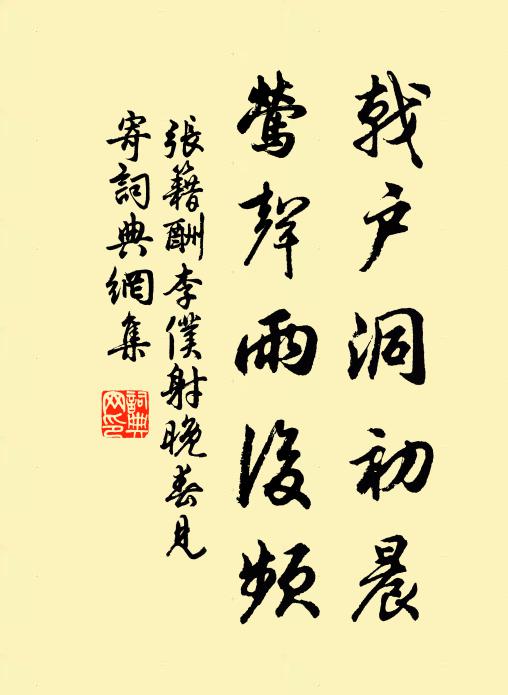 戟户洞初晨
莺聲雨後頻
張籍酬李僕射晚春見
寄詞典網集
詞典
网印